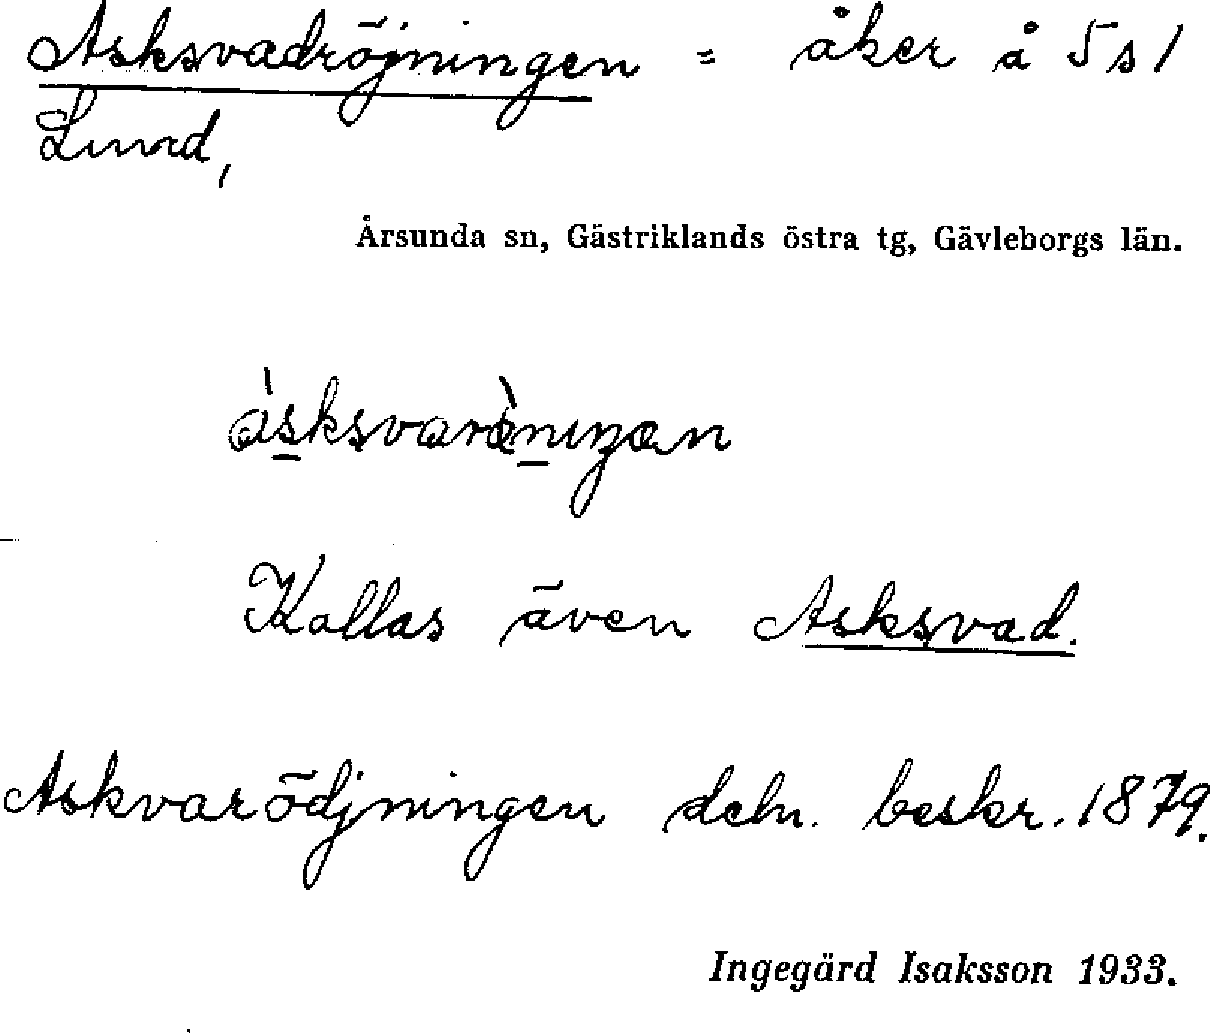 Asksvadröjningen = åker å 5 s 1
Lund,
Årsunda sn, Gästriklands östra tg, Gävleborgs län.
Kallas även Asksvad.
Askvarödjningen deln. beskr. 1879.
Ingegärd Isaksson 1933.